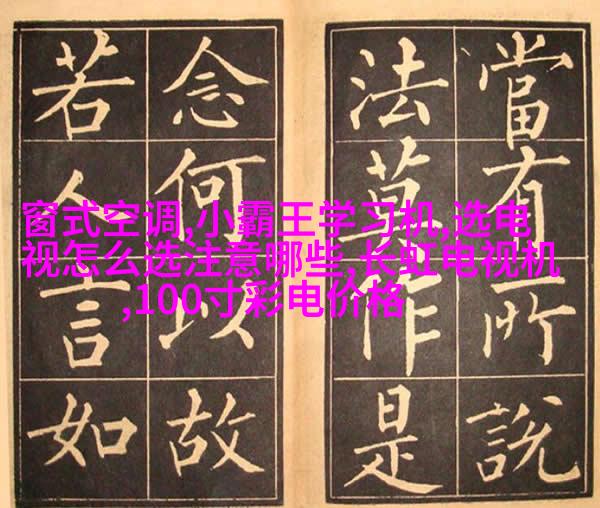 當有所說
法莫作是
念何以故
若人言如
窗式空调,小霸王学习机,选电
视怎么选注意哪些,长虹电视机
,100寸彩电价格